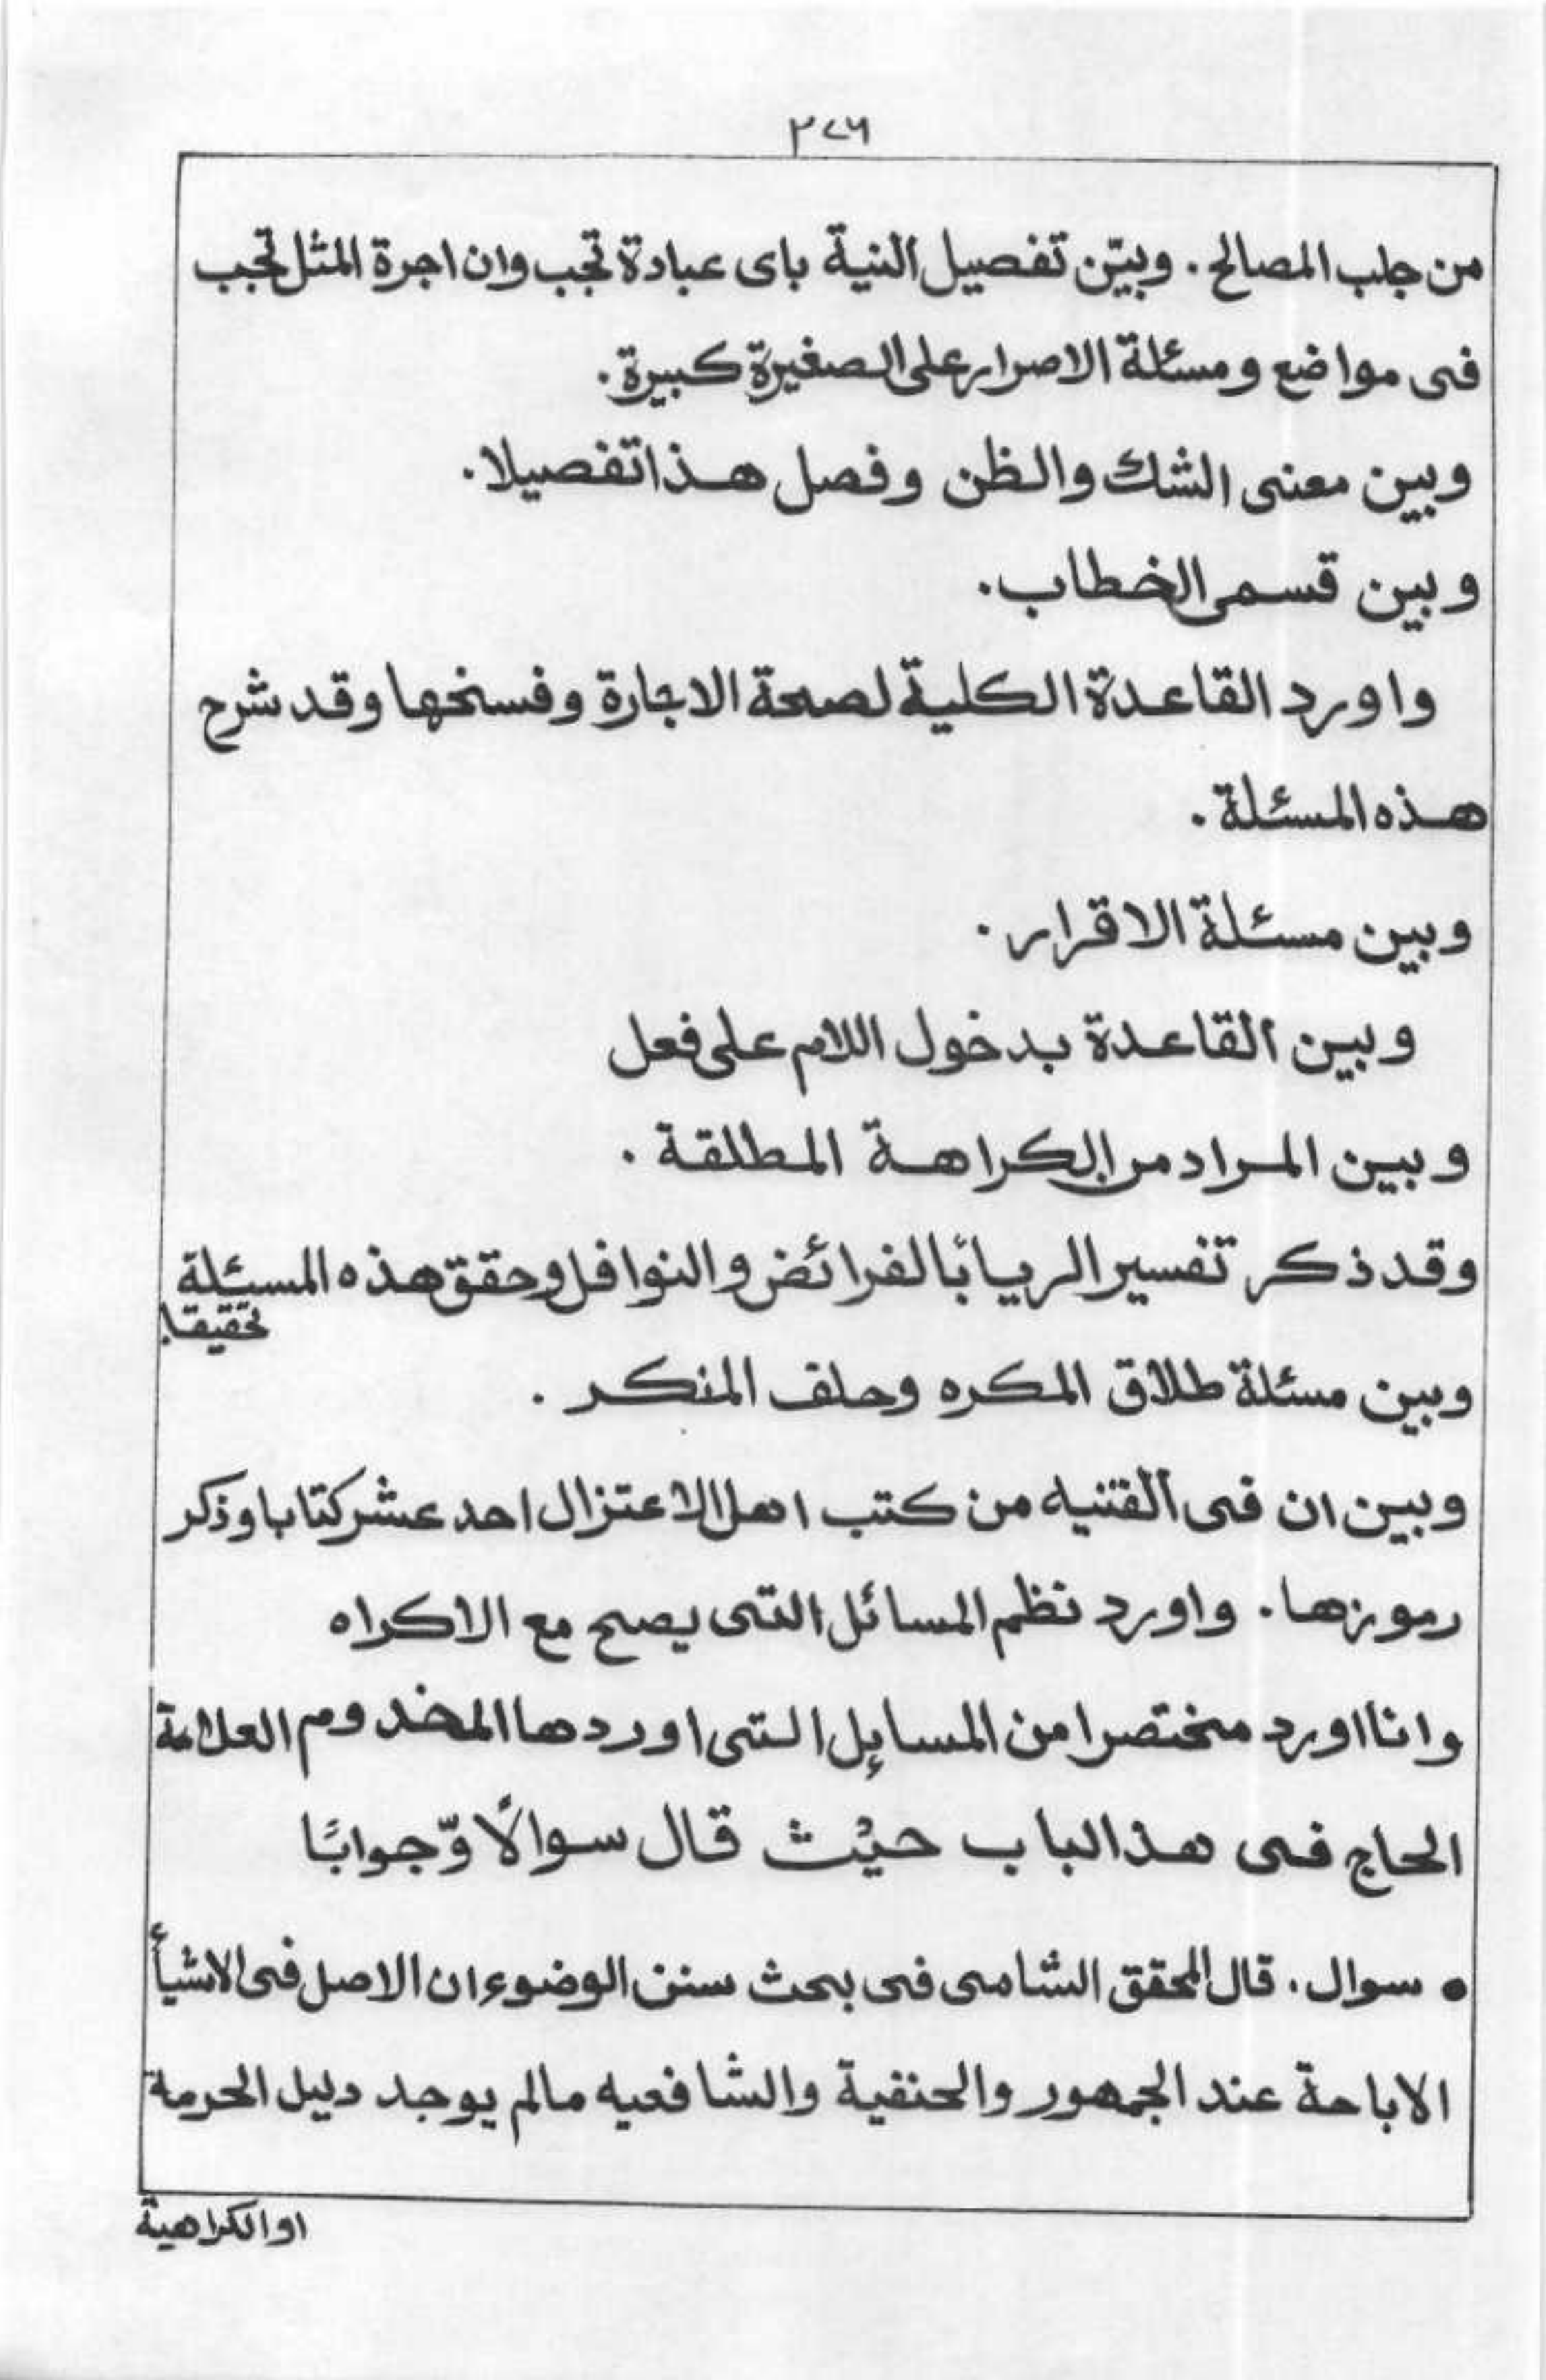 ٢٧٦
من جلب المصالح . وبيّن تفصيل النية بای عبادة تجب وان اجرة المثل تجب
فی مواضع ومسئلة الاصرار علی الصغيرة كبيرة .
وبين معنی الشك والظن وفصل هذا تفصيلا .
وبين قسمی الخطاب .
واورد القاعدة الكلية لصحة الاجارة وفسخها وقد شرح
هذه المسئلة .
وبين مسئلة الاقرار .
وبين القاعدة بدخول اللام علی فعل
وبين المراد من الكراهة المطلقة .
وقد ذكر تفسير الرياء بالفرائض والنوافل وحقق هذه المسئلة
تحقيقا .
وبين مسئلة طلاق المكره وحلف المنكر .
وبين ان فی القنيه من كتب اهل الاعتزال احد عشر كتابا وذكر
رموزها . واورد نظم المسائل التی يصح مع الاكراه
وانا اورد مختصرا من المسايل التی اوردها المخدوم العلامة
الحاج فی هذ الباب حيث قال سوالًا وّجوابًا
• سوال . قال المحقق الشامی فی بحث سنن الوضوء ان الاصل فی الاشيأ
الاباحة عند الجمهور والحنفية والشافعيه مالم يوجد دليل الحرمة
او الكراهية